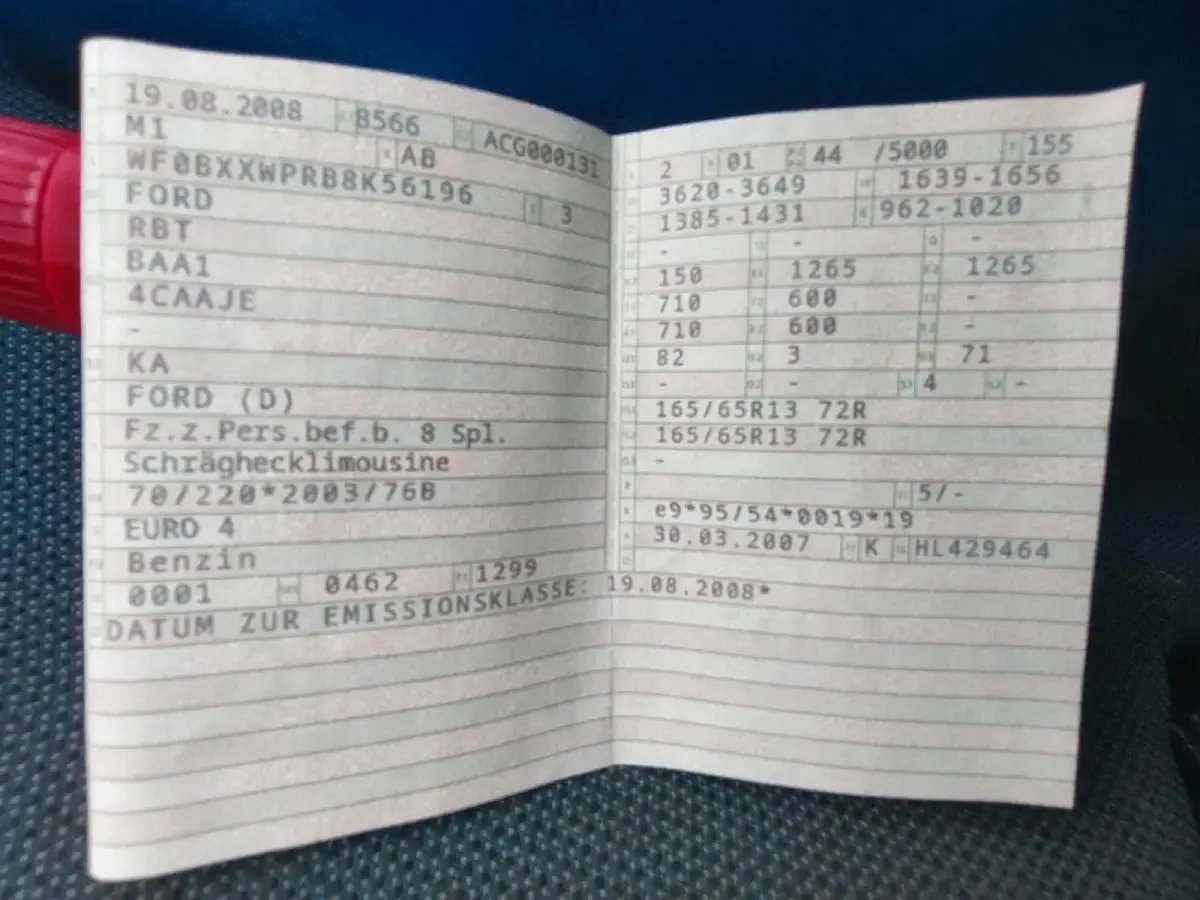 19.08.2008 8566 ACG000131
M1 AB
WF0BXXWPRB8K56196 3
FORD
RBT
BAA1
4CAAJE
-
KA
FORD (D)
Fz.z.Pers.bef.b. 8 Spl.
Schräghecklimousine
70/220*2003/76B
EURO 4
Benzin
0001 0462 1299
DATUM ZUR EMISSIONSKLASSE: 19.08.2008*
2 01 44 /5000 155
3620-3649 1639-1656
1385-1431 962-1020
- - -
150 1265 1265
710 600 -
710 600 -
82 3 71
- - 4 -
165/65R13 72R
165/65R13 72R
-
5/-
e9*95/54*0019*19
30.03.2007 K HL429464